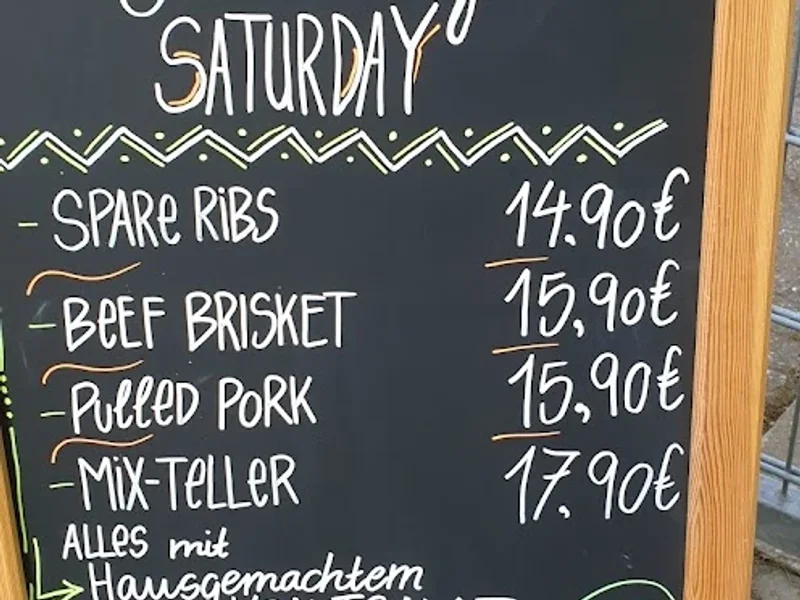 SATURDAY
- SPARE RIBS 14.90€
- BEEF BRISKET 15,90€
- PULLED PORK 15,90€
- MIX-TELLER 17.90€
ALLES mit
Hausgemachtem